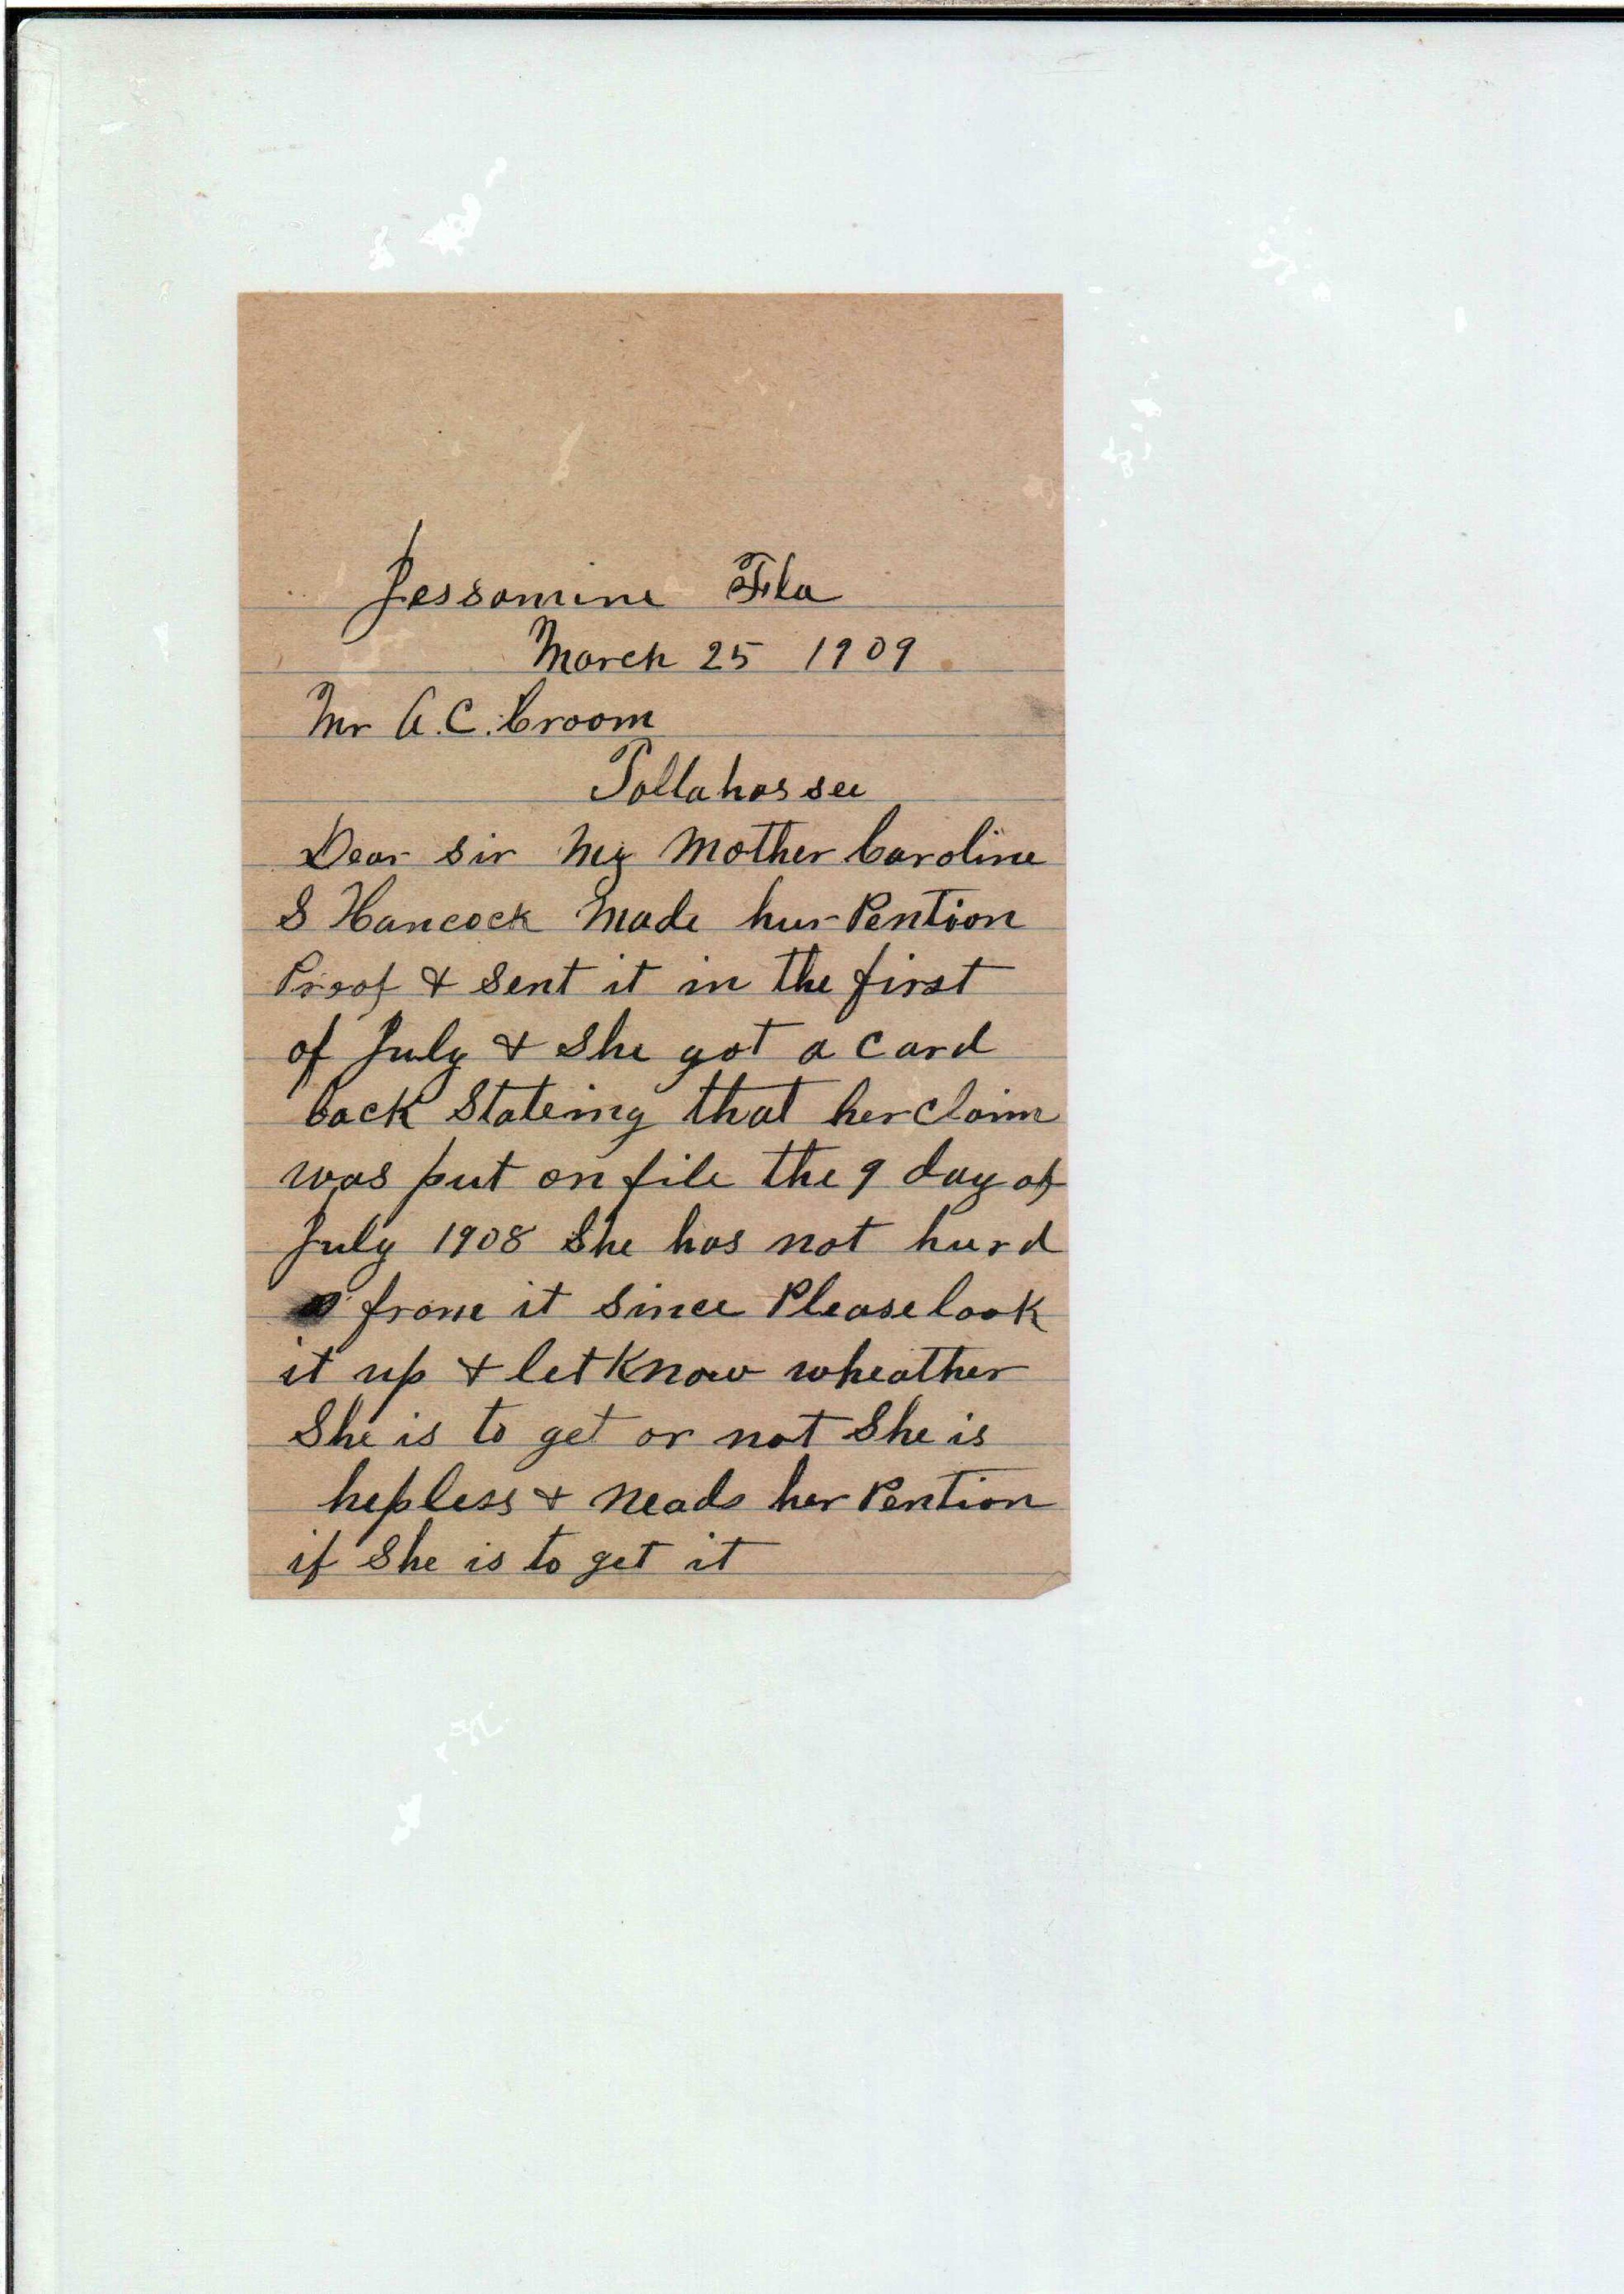 Jessamine Fla
March 25 1909
Mr A.C. Croom
Tallahassee
Dear sir My Mother Caroline
S Hancock Made hur Pention
Proof & Sent it in the first
of July & She got a Card
back Stateing that her Claim
was put on file the 9 day of
July 1908 She has not hurd
from it Since Please look
it up & let Know wheather
She is to get or not She is
hepless & neads her Pention
if She is to get it